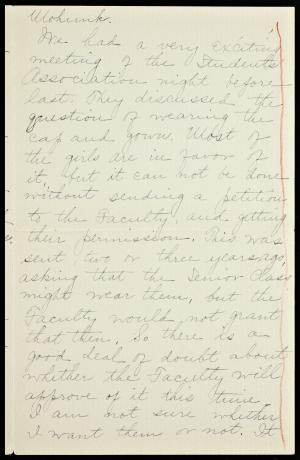 Mohunk.
We had a very exciting
meeting of the Students'
Association night before
last. They discussed the
question of wearing the
cap and gown. Most of
the girls are in favor of
it, but it can not be done
without sending a petition
to the Faculty and getting
their permission. This was
sent two or three years ago,
asking that the Senior Class
might wear them, but the
Faculty would not grant
that then. So there is a
good deal of doubt about
whether the Faculty will
approve of it this time.
I am not sure whether
I want them or not. It